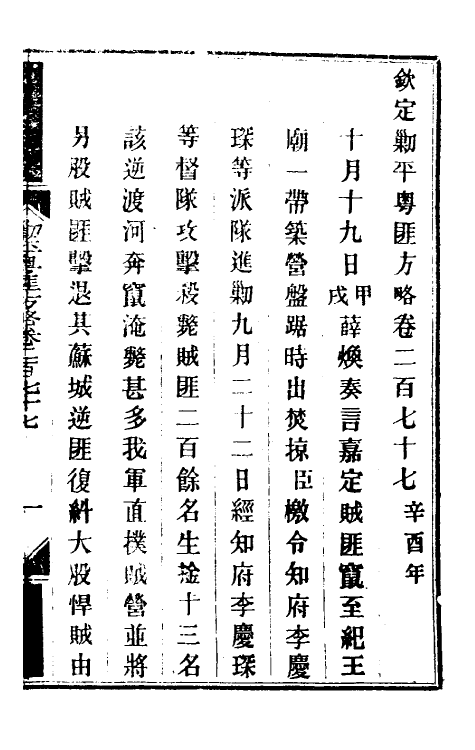 欽定勦平粵匪方略卷二百七十七 辛酉年
十月十九日甲戌薛煥奏言嘉定賊匪竄至紀王
廟一帶築營盤踞時出焚掠臣檄令知府李慶
琛等派隊進勦九月二十二日經知府李慶琛
等督隊攻擊殺斃賊匪二百餘名生擒十三名
該逆渡河奔竄淹斃甚多我軍直撲賊營並將
另股賊匪擊退其蘇城逆匪復糾大股悍賊由
勦平粵匪方略卷二百七十七
一